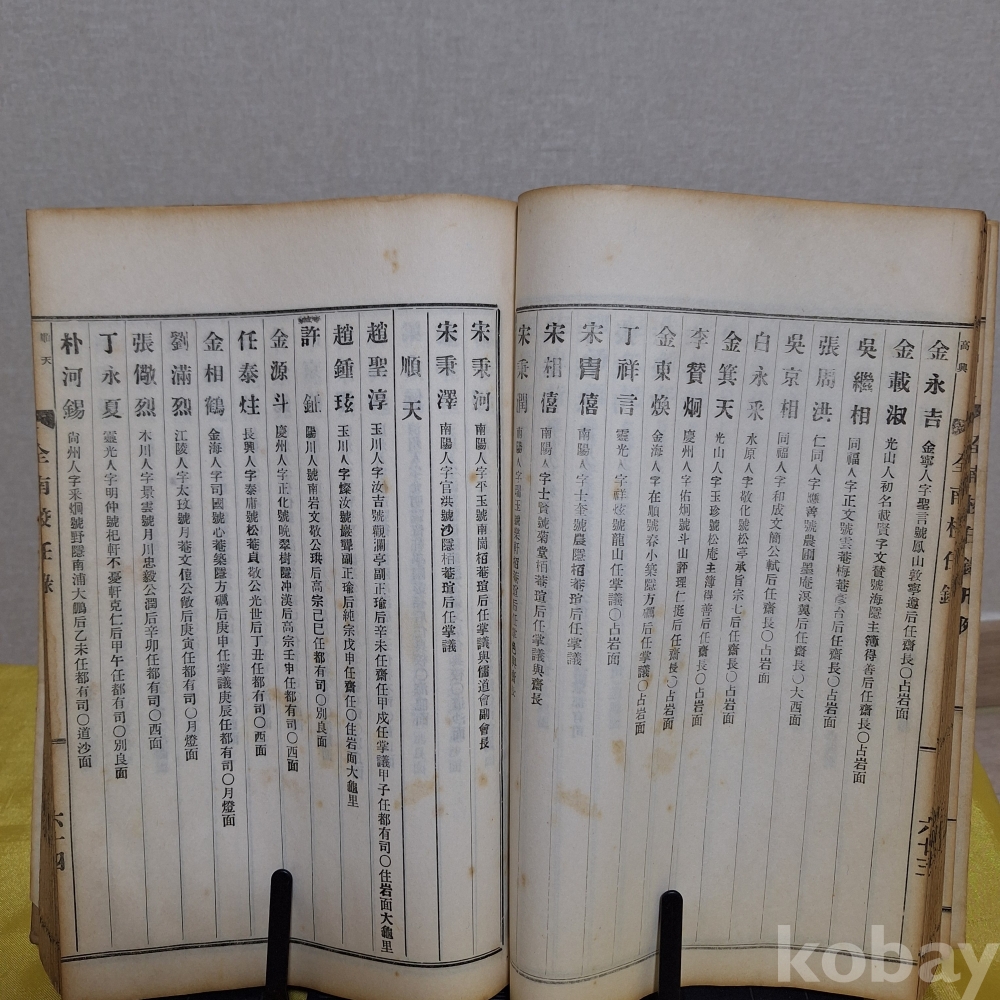 高興
金永吉 金寧人字聖言號鳳山敦寧遵后任齋長〇占岩面
金載淑 光山人初名載賢字文賛號海隱主簿得善后任齋長〇占岩面
吳繼相 同福人字正文號雲菴梅菴 台后任齋長〇占岩面
張周洪 仁同人字 善號農圃墨庵溟翼后任齋長〇占岩面
吳京相 同福人字和成文簡公軾后任齋長〇大西面
白永采 水原人字敬化號松亭承旨宗七后任齋長〇占岩面
金箕天 光山人字玉珍號松庵主簿得善后任齋長〇占岩面
李賛炯 慶州人字佑炯號斗山評理仁挺后任齋長〇占岩面
金東煥 金海人字在順號春小築隱方礪后任掌議〇占岩面
丁祥言 靈光人字祥炫號龍山任掌議〇占岩面
宋胄僖 南陽人字士奎號農隱栢菴瑄后任掌議
宋相僖 南陽人字士賢號菊堂栢菴瑄后任掌議與齋長
宋秉潤 南陽人字 玉號 軒栢菴瑄后任
宋秉河 南陽人字平玉號南崗栢菴瑄后任掌議與儒道會副會長
宋秉澤 南陽人字官洪號沙隱栢菴瑄后任掌議
順天
趙聖淳 玉川人字汝吉號觀瀾亭副正瑜后辛未任齋任甲戌任掌議甲子任都有司〇住岩面大龜里
趙鍾玹 玉川人字燦汝號巖聾副正瑜后純宗戊申任齋任〇住岩面大龜里
許鉦 陽川人號南岩文敬公珙后高宗己巳任都有司〇別良面
金源斗 慶州人字正化號晩翠樹隱冲漢后高宗壬申任都有司〇西面
任泰炷 長興人字泰庸號松菴貞敬公光世后丁丑任都有司〇西面
金相鶴 金海人字司國號心菴築隱方礪后庚申任掌議庚辰任都有司〇月燈面
劉滿烈 江陵人字太玟號月菴文僖公敞后庚寅任都有司〇月燈面
張儆烈 木川人字景雲號月川忠毅公潤后辛卯任都有司〇西面
丁永夏 靈光人字明仲號杞軒不憂軒克仁后甲午任都有司〇別良面
朴河錫 尙州人字采炯號野隱南浦大鵬后乙未任都有司〇道沙面
順天
全南校任錄
六十四
全南校任錄
六十三
kobay